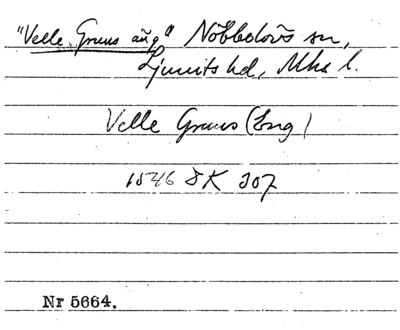 "Velle Gruus äng" Nöbbelövs sn,
Ljunits hd, Mhs l.
Velle Gruus (Eng)
1546 DK 307
Nr 5664.